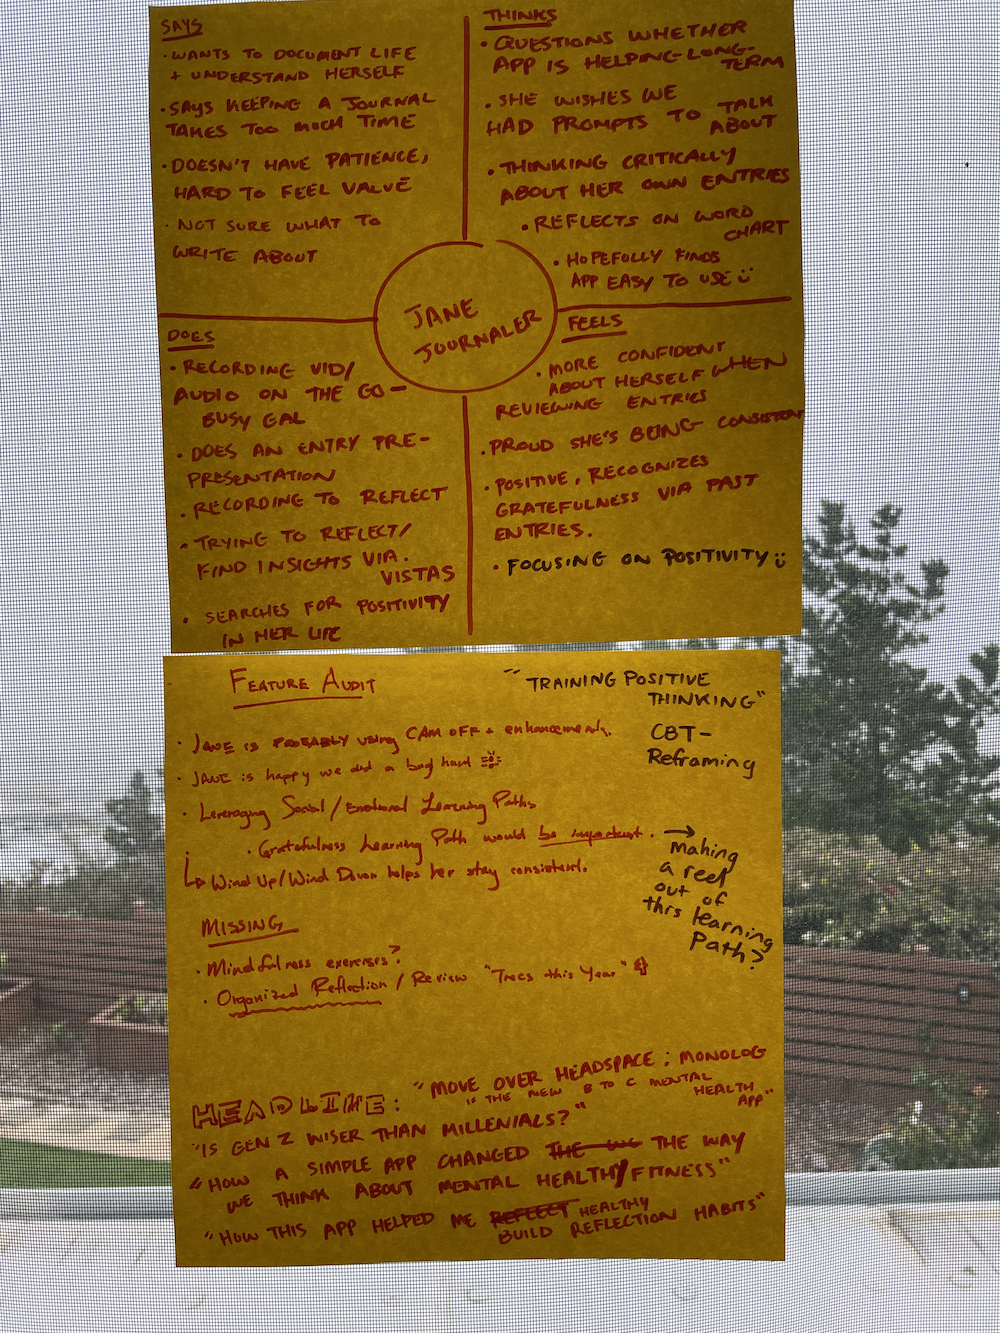 SAYS
· WANTS TO DOCUMENT LIFE
+ UNDERSTAND HERSELF
· SAYS KEEPING A JOURNAL
TAKES TOO MUCH TIME
· DOESN'T HAVE PATIENCE,
HARD TO FEEL VALUE
· NOT SURE WHAT TO
WRITE ABOUT
THINKS
· QUESTIONS WHETHER
APP IS HELPING LONG-
TERM
· SHE WISHES WE
HAD PROMPTS TO TALK
ABOUT
· THINKING CRITICALLY
ABOUT HER OWN ENTRIES
· REFLECTS ON WORD
CHART
· HOPEFULLY FINDS
APP EASY TO USE
JANE
JOURNALER
DOES
· RECORDING VID/
AUDIO ON THE GO -
BUSY GAL
· DOES AN ENTRY PRE-
PRESENTATION
· RECORDING TO REFLECT
· TRYING TO REFLECT/
FIND INSIGHTS VIA.
VISTAS
· SEARCHES FOR POSITIVITY
IN HER LIFE
FEELS
· MORE CONFIDENT
ABOUT HERSELF WHEN
REVIEWING ENTRIES
· PROUD SHE'S BEING CONSISTENT
· POSITIVE, RECOGNIZES
GRATEFULNESS VIA PAST
ENTRIES.
· FOCUSING ON POSITIVITY
FEATURE AUDIT
"TRAINING POSITIVE
THINKING"
CBT-
Reframing
· JANE is PROBABLY using CAM OFF + enhancements.
· JANE is happy we did a
· Leveraging Social/Emotional Learning Paths
· Gratefulness Learning Path would be important. →
making
a reel
out of
this learning
Path?
↳ Wind Up/Wind Down helps her stay consistent.
MISSING
· Mindfulness exercises?
· Organized Reflection / Review "Trees this Year"
HEADLINE: "MOVE OVER HEADSPACE: MONOLOG
IS THE NEW B TO C MENTAL
HEALTH
APP"
"IS GEN Z WISER THAN MILLENIALS?"
"HOW A SIMPLE APP CHANGED THE WAY
WE THINK ABOUT MENTAL HEALTH/FITNESS"
"HOW THIS APP HELPED ME REFLECT HEALTHY
BUILD REFLECTION HABITS"